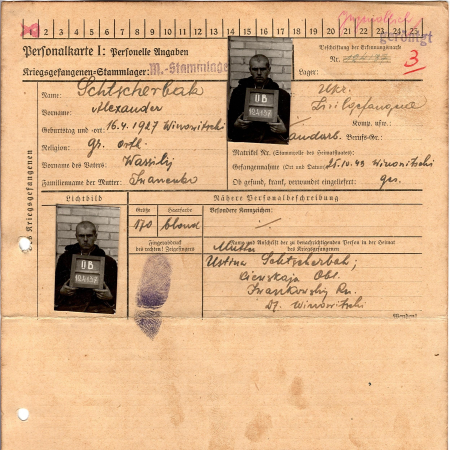 2 3 4 5 6 7 8 9 10 11 12 13 14 15 16 17 18 19 20 21 22 23 24 25
Personalkarte I: Personelle Angaben
Beschriftung der Erkennungsmarke
Nr.
3
Kriegsgefangenen-Stammlager: M.-Stammlager
Lager:
Name: Schtscherbak
Vorname: Alexander
Geburtstag und -ort: 16.4.1927 Winowitschi
Religion: gr. Orth.
Vorname des Vaters: Wassilij
Familienname der Mutter: Iwanenko
Ukr.
Zivilgefangener
Komp. usw.:
Berufs-Gr.:
Matrikel Nr. (Stammrolle des Heimatstaates):
Gefangennahme (Ort und Datum): 25.10.43 Winowitschi
Ob gesund, krank, verwundet eingeliefert: ges.
Des Kriegsgefangenen
Lichtbild
Nähere Personalbeschreibung
Größe
Haarfarbe
Besondere Kennzeichen:
170
blond
Fingerabdruck
des rechten Zeigefingers
Name und Anschrift der zu benachrichtigenden Person in der Heimat
des Kriegsgefangenen
Mutter
Ustina Schtscherbak;
Obl.
Rn.
D. Winowitschi
Wenden!
UB
UB